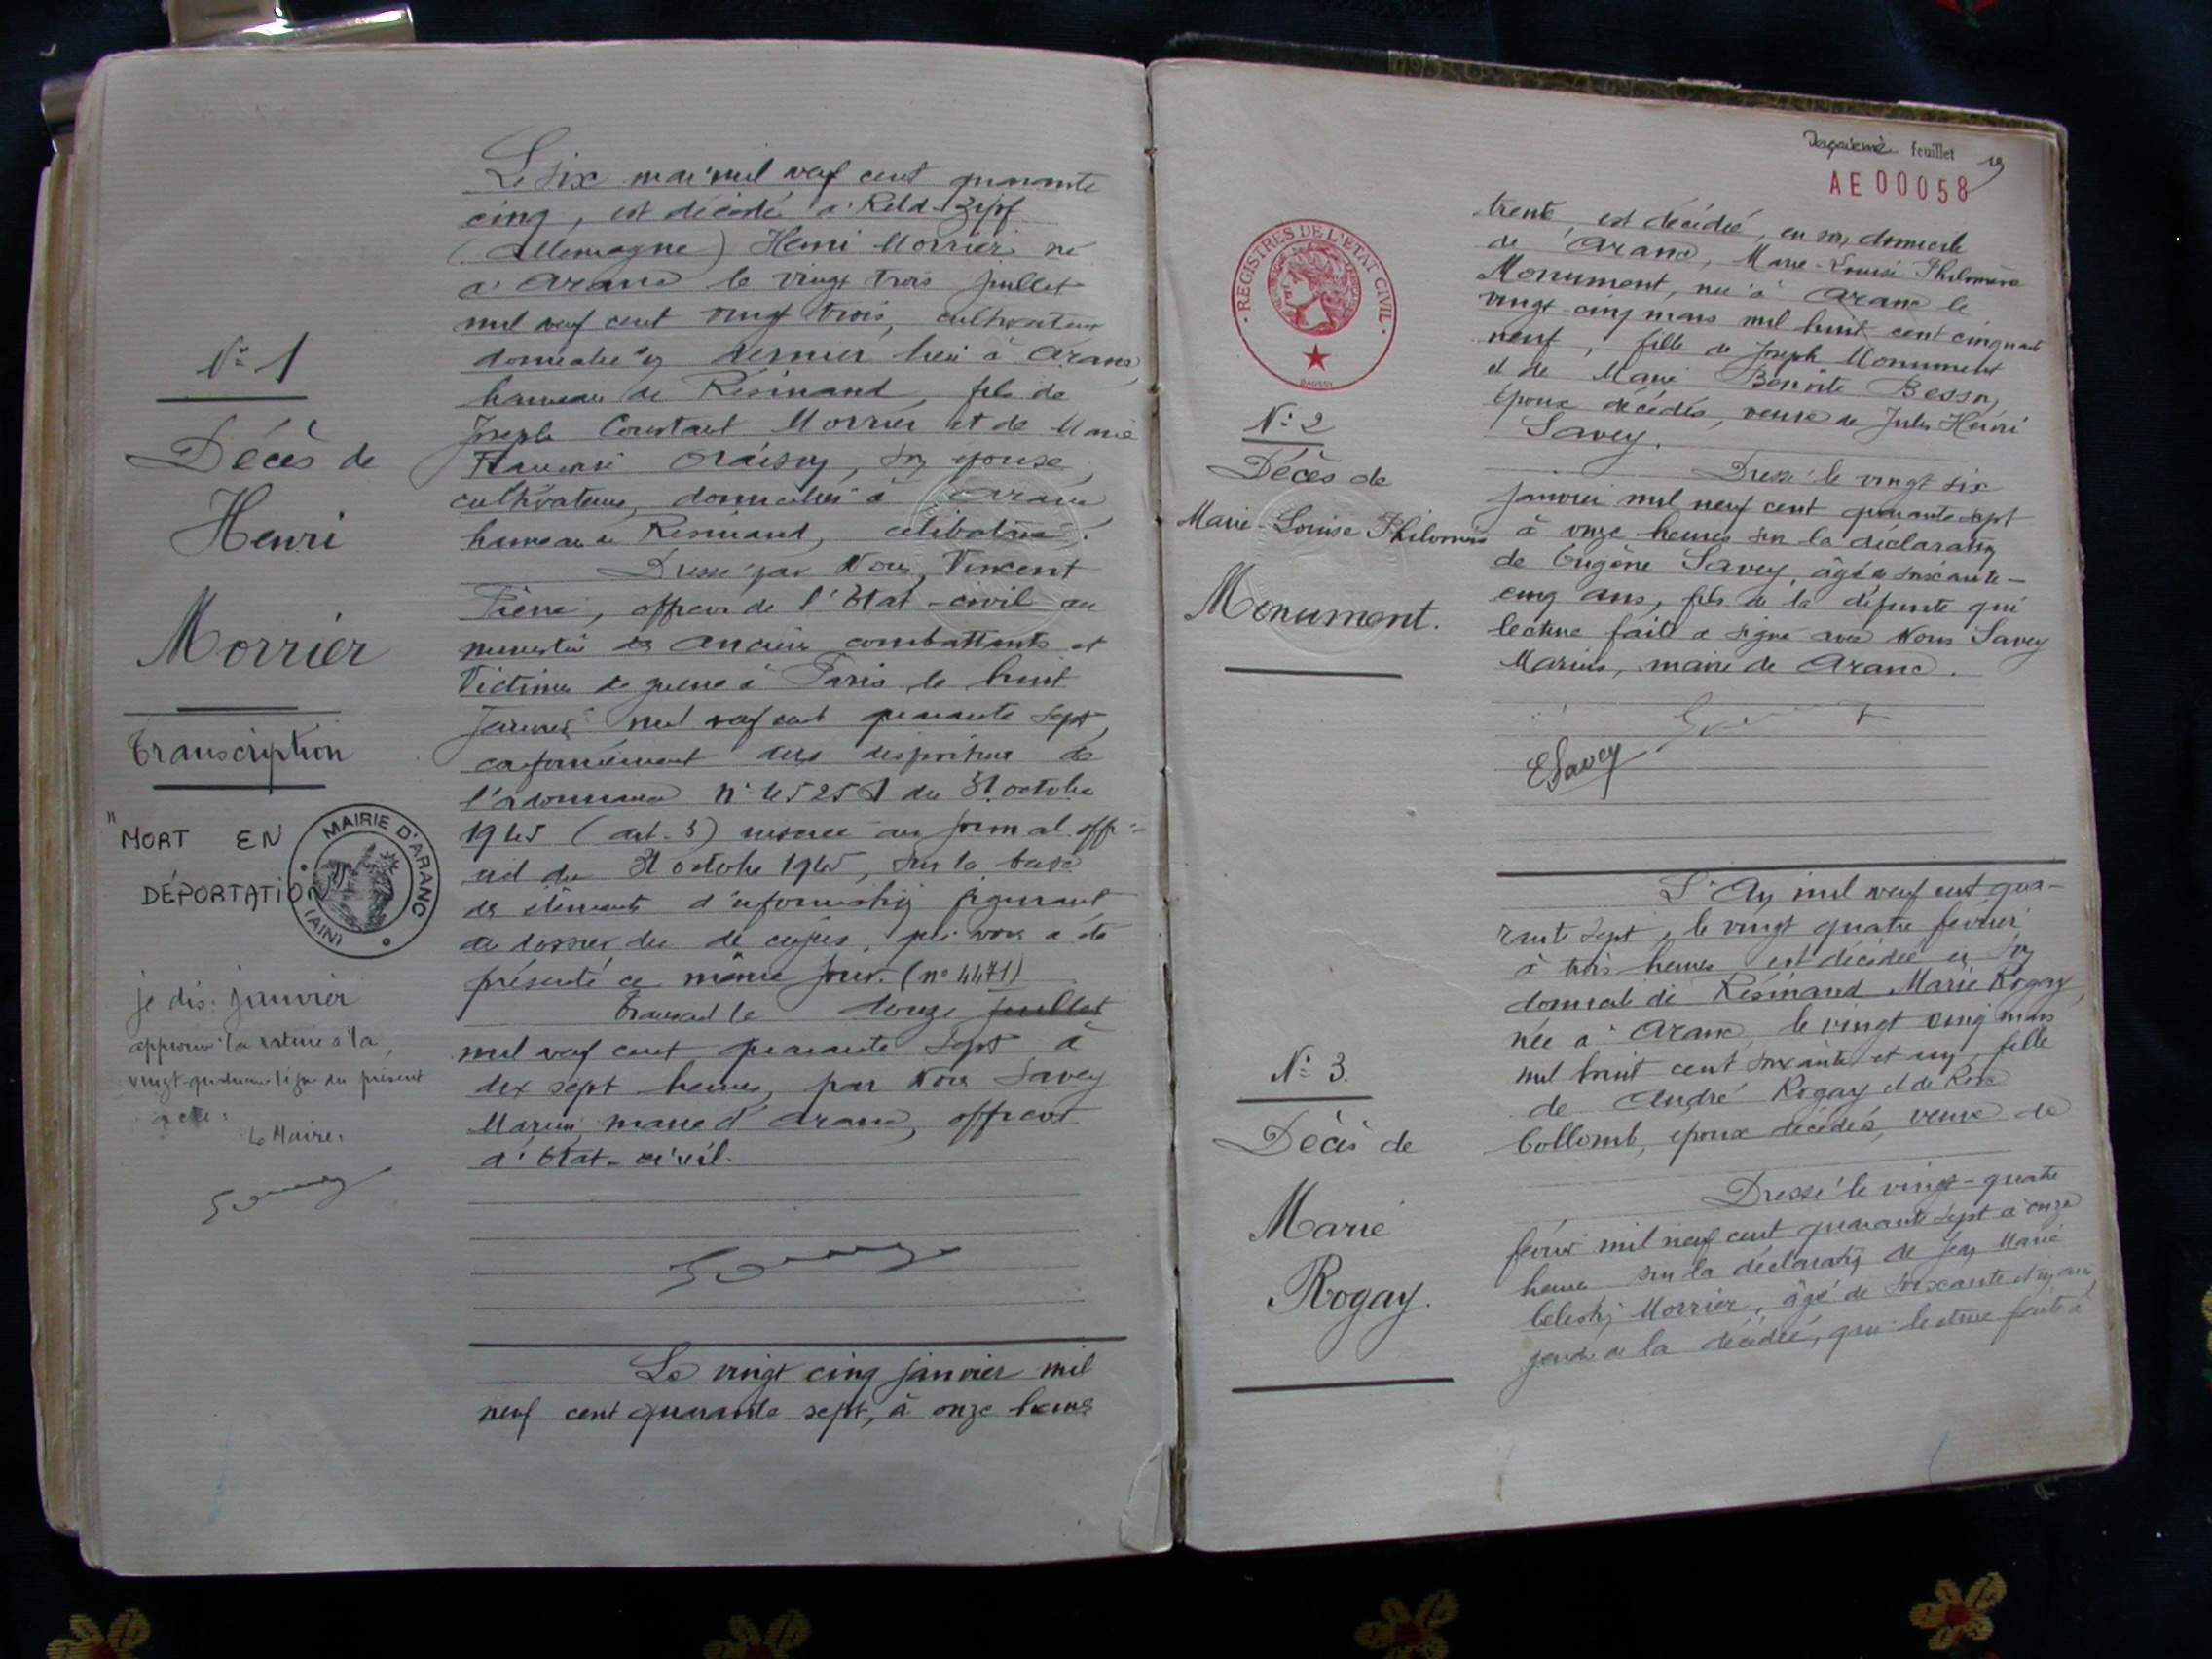 N° 1
Décès de
Henri
Morrier
Transcription
"MORT EN
DÉPORTATION
MAIRIE D'ARANC
(AIN)
je dis: janvier
approuvé la rature à la
vingt quatrième ligne du présent
acte:
Le Maire:
Le six mai mil neuf cent quarante
cinq, est décédé à Zipf
(Allemagne) Henri Morrier né
à Aranc le vingt trois juillet
mil neuf cent vingt trois, cultivateur
domicilié en dernier lieu à Aranc,
hameau de Résinand, fils de
Joseph Constant Morrier et de Marie
Oraison, son épouse,
cultivateurs, domiciliés à Aranc
hameau de Résinand, célibataire.
Dressé par Nous, Vincent
Pierre, officier de l'Etat-civil au
ministère des Anciens combattants et
Victimes de guerre à Paris, le huit
Janvier mil neuf cent quarante sept,
conformément aux dispositions de
l'ordonnance N° 45 25 du 31 octobre
1945 (art. 3) insérée au journal offi-
ciel du 31 octobre 1945, sur la base
des éléments d'information figurant
au dossier du de cujus, qui nous a été
présenté ce même jour. (n° 4471)
Transcrit le douze juillet
mil neuf cent quarante sept à
dix sept heures, par Nous Savey
Marius, maire d'Aranc, officier
d'Etat-civil.
Le vingt cinq janvier mil
neuf cent quarante sept, à onze heures
feuillet 19
AE 00058
REGISTRES DE L'ETAT CIVIL
N° 2
Décès de
Marie-Louise Philomène
Monument.
trente, est décédée, en son domicile
de Aranc, Marie-Louise Philomène
Monument, née à Aranc le
vingt-cinq mars mil huit cent cinquante
neuf, fille de Joseph Monument
et de Marie Benoîte Besson,
époux décédés, veuve de Jules Henri
Savey.
Dressé le vingt six
janvier mil neuf cent quarante sept
à onze heures sur la déclaration
de Eugène Savey, âgé de soixante-
cinq ans, fils de la défunte qui
lecture faite a signé avec Nous Savey
Marius, maire de Aranc.
ESavey
L'An mil neuf cent qua-
rante sept, le vingt quatre février
à trois heures est décédée en son
domicile de Résinand Marie Rogay,
née à Aranc, le vingt cinq mars
mil huit cent soixante et un, fille
de André Rogay et de Rose
Collomb, époux décédés, veuve de
N° 3.
Décès de
Marie
Rogay.
Dressé le vingt-quatre
février mil neuf cent quarante sept à onze
heures sur la déclaration de Jean Marie
Célestin Morrier, âgé de soixante et un ans,
gendre de la décédée, qui lecture faite a